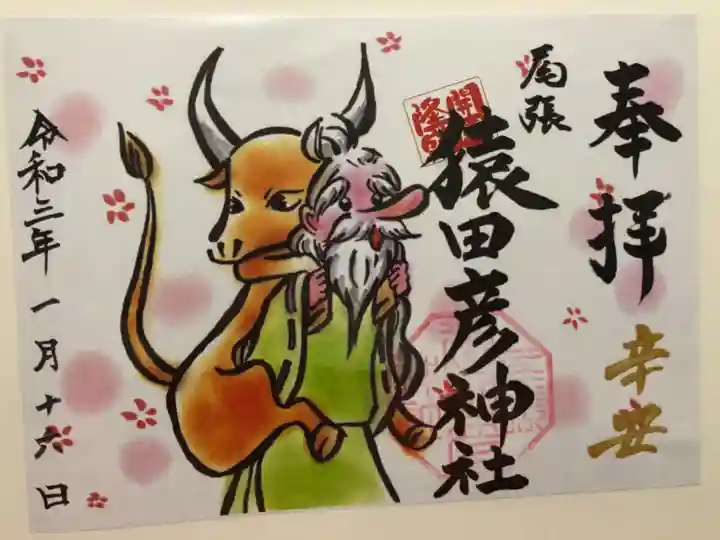 奉拝
辛安
尾張
猿田彦神社
令和三年一月十六日